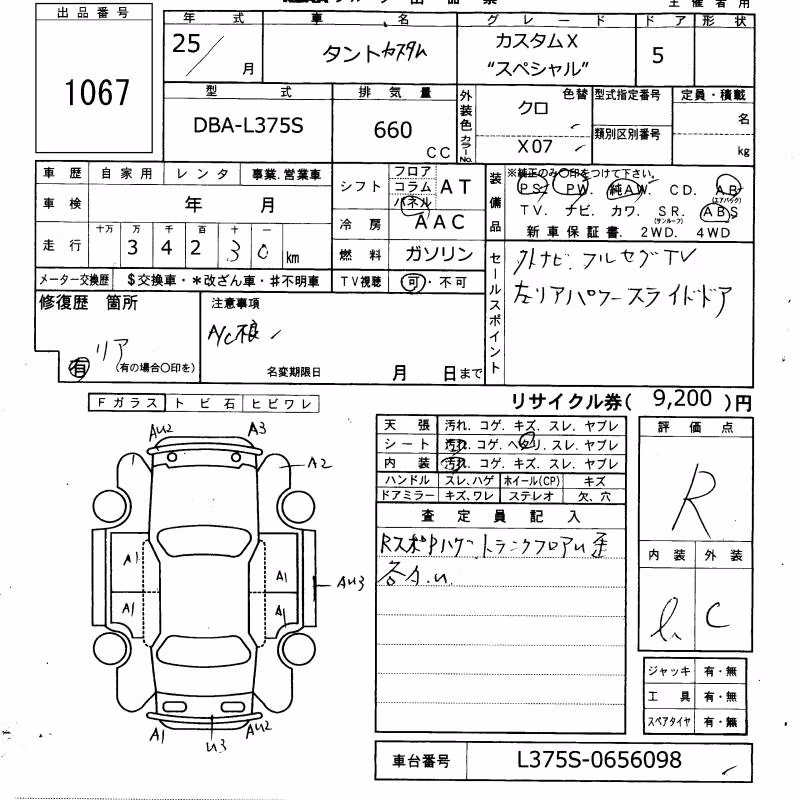 主催者用
出品番号
1067
年式 車名 グレード ドア 形状
25/月 タントカスタム カスタムX “スペシャル” 5
型式 排気量 外装色 カラーNo. 色替 型式指定番号 定員・積載
DBA-L375S 660 CC クロ X07 類別区別番号 名 kg
車歴 自家用 レンタ 事業.営業車
車検 年 月
走行 十万 万 千 百 十 一
34230 km
メーター交換歴 $交換車・*改ざん車・#不明車
シフト フロア コラム パネル AT
冷房 AAC
燃料 ガソリン
TV視聴 可・不可
装備品 ※純正のみ○印をつけて下さい。
PS. PW. 純AW. CD. AB (エアバック)
TV. ナビ. カワ. SR. (サンルーフ) ABS
新車保証書. 2WD. 4WD
セールスポイント
外ナビ.フルセグTV
左リアパワースライドドア
修復歴 箇所
リア
有 (有の場合○印を)
注意事項
A/C不良
名変期限日 月 日まで
Fガラス トビ石 ヒビワレ
リサイクル券( 9,200 )円
AU2 A3
A2
A1 A1
AU3
A1 A1
A1 U3 AU2
天張 汚れ. コゲ. キズ. スレ. ヤブレ
シート 汚れ. コゲ. ヘタリ. スレ. ヤブレ
内装 汚れ. コゲ. キズ. スレ. ヤブレ
ハンドル スレ、ハゲ ホイール(CP) キズ
ドアミラー キズ、ワレ ステレオ 欠、穴
査定員記入
RスポPハゲ.トランクフロアU歪
各A.U.
評価点
R
内装 外装
C
ジャッキ 有・無
工具 有・無
スペアタイヤ 有・無
車台番号 L375S-0656098